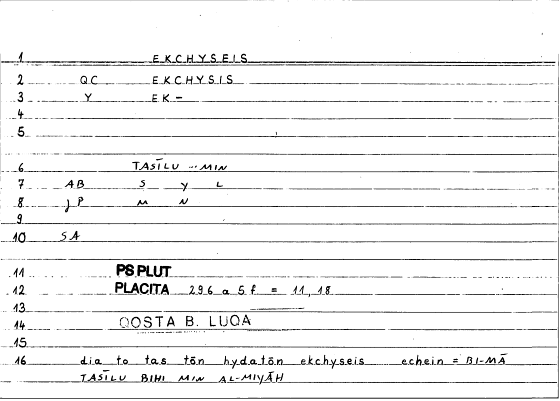 1 EKCHYSEIS
2 QC EKCHYSIS
3 Y EK-
4
5
6 TASĪLU -- MIN
7 AB S Y L
8 J P M N
9
10 SA
11 PS PLUT
12 PLACITA 296 a 5 f. = 11, 18
13
14 QOSTA B. LUQA
15
16 dia to tas tōn hydatōn ekchyseis echein = BI-MĀ
TASĪLU BIHI MIN AL-MIYĀH